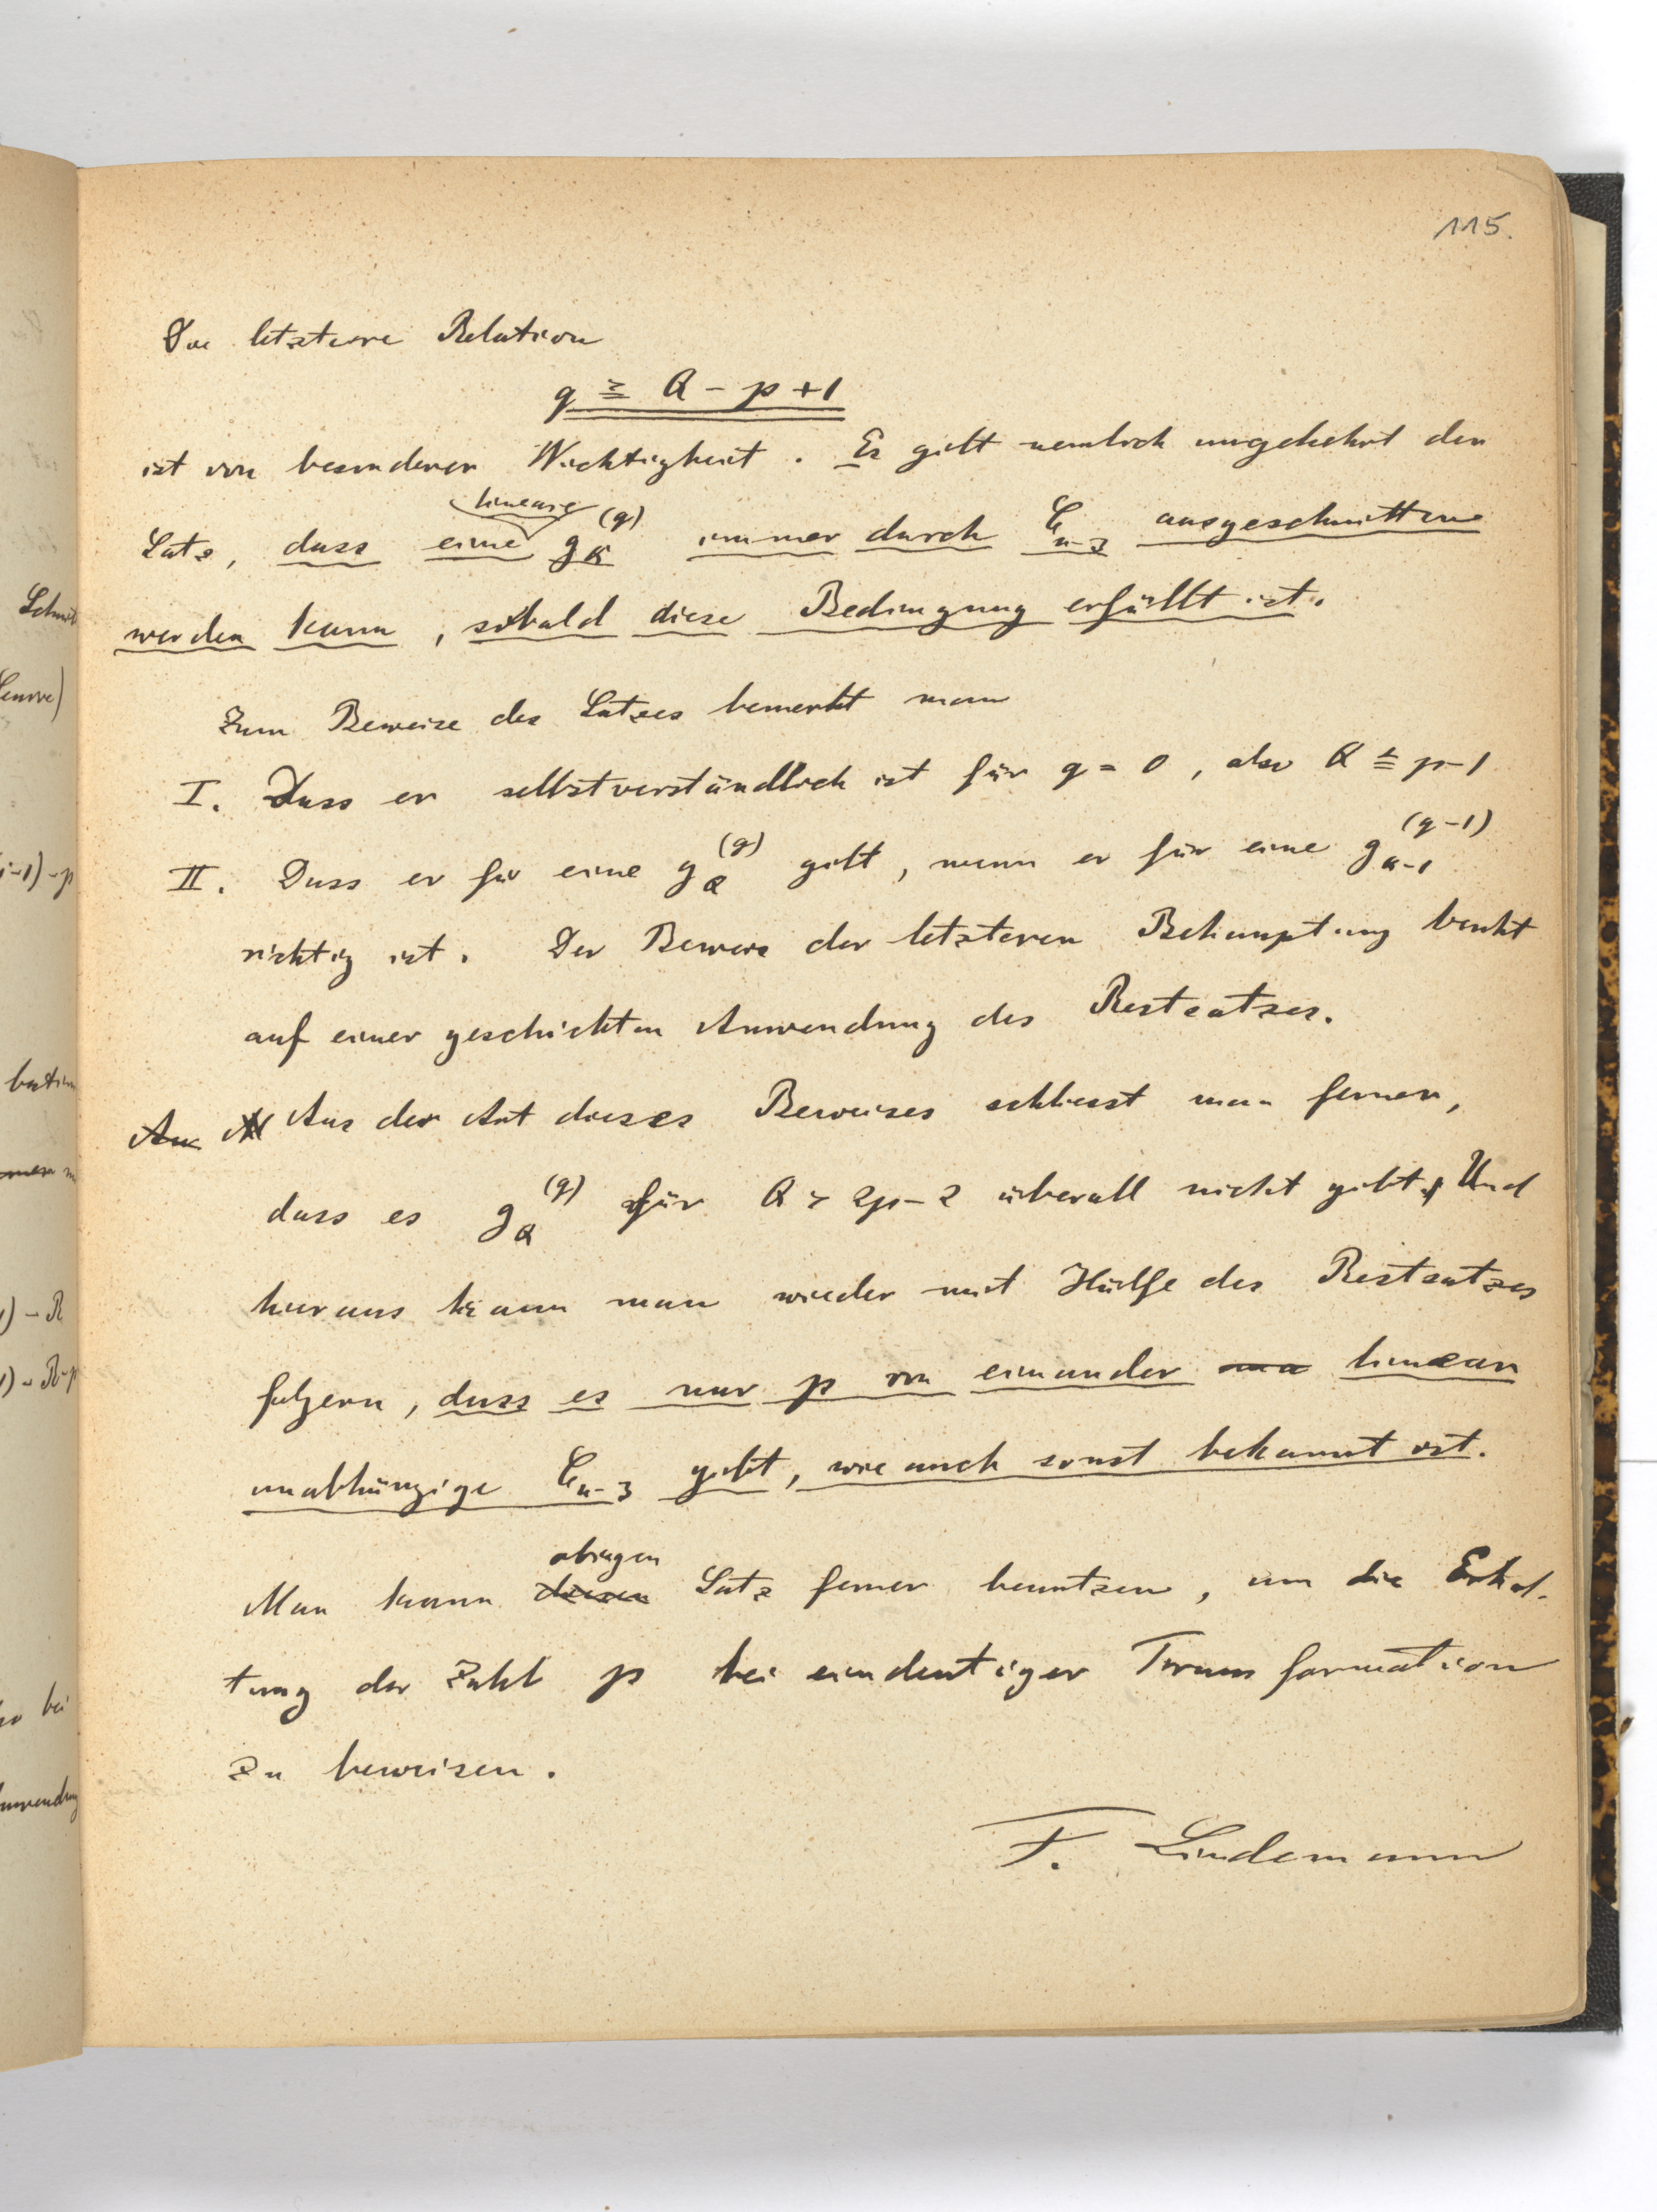 115.
Die letztere Relation
q ≧ Q - p + 1
ist von besonderer Wichtigkeit. Es gilt nemlich umgekehrt der
lineare
Satz, dass eine g_Q^(q) immer durch C_{n-3} ausgeschnitten
werden kann, sobald diese Bedingung erfüllt ist.
Zum Beweise des Satzes bemerkt man
I. Dass er selbstverständlich ist für q = 0, also Q ≦ p-1
II. Dass er für eine g_Q^(q) gilt, wenn er für eine g_{Q-1}^(q-1)
richtig ist. Der Beweis der letzteren Behauptung beruht
auf einer geschickten Anwendung des Restsatzes.
Aus der Art dieses Beweises schliesst man ferner,
dass es g_Q^(q) für Q > 2p-2 überall nicht gibt. Und
hieraus kann man wieder mit Hülfe des Restsatzes
folgern, dass es nur p von einander linear
unabhängige C_{n-3} gibt, wie auch sonst bekannt ist.
obigen
Man kann diesen Satz ferner benutzen, um die Erhal-
tung der Zahl p bei eindeutiger Transformation
zu beweisen.
F. Lindemann
Schnitt
(i-1)-p
) - R
) - R-p
bei